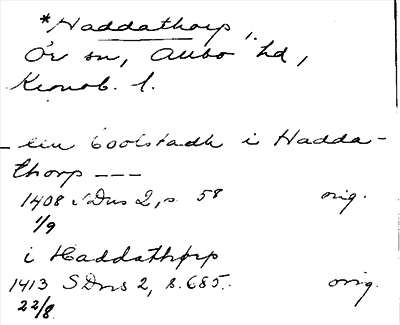 *Haddathorp,
Ör sn, Allbo hd,
Kronob. l.
– een boolstadh i Hadda-
thorp – – –
1408 SDns 2, s. 58 orig.
1/9
i Haddathørp
1413 SDns 2, s. 685. orig.
22/8